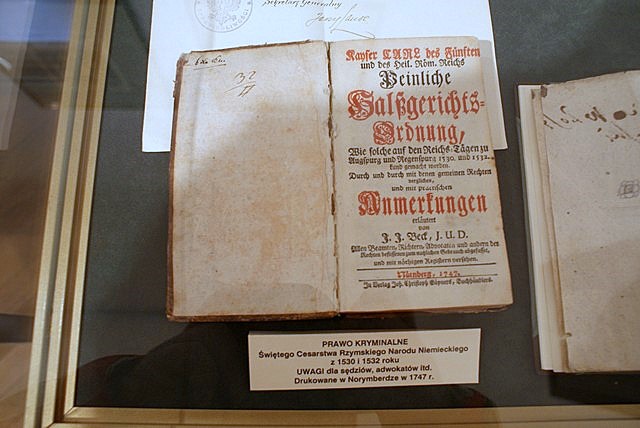 Sekretarz Generalny
32
Kayser CARL des Fünften
und des Heil. Röm. Reichs
Peinliche
Halßgerichts-
Ordnung,
Wie solche auf den Reichs-Tägen zu
Augspurg und Regenspurg 1530. und 1532.
kund gemacht worden.
Durch und durch mit denen gemeinen Rechten
verglichen,
und mit practischen
Anmerkungen
erläutert
von
J. J. Beck, J. U. D.
Allen Beamten, Richtern, Advocaten und andern der
Rechten beflissenen zum nutzlichen Gebrauch abgefasset,
und mit nöthigen Registern versehen.
Nürnberg, 1747.
In Verlag Joh. Christoph Göpners, Buchhändlers.
PRAWO KRYMINALNE
Świętego Cesarstwa Rzymskiego Narodu Niemieckiego
z 1530 i 1532 roku
UWAGI dla sędziów, adwokatów itd.
Drukowane w Norymberdze w 1747 r.